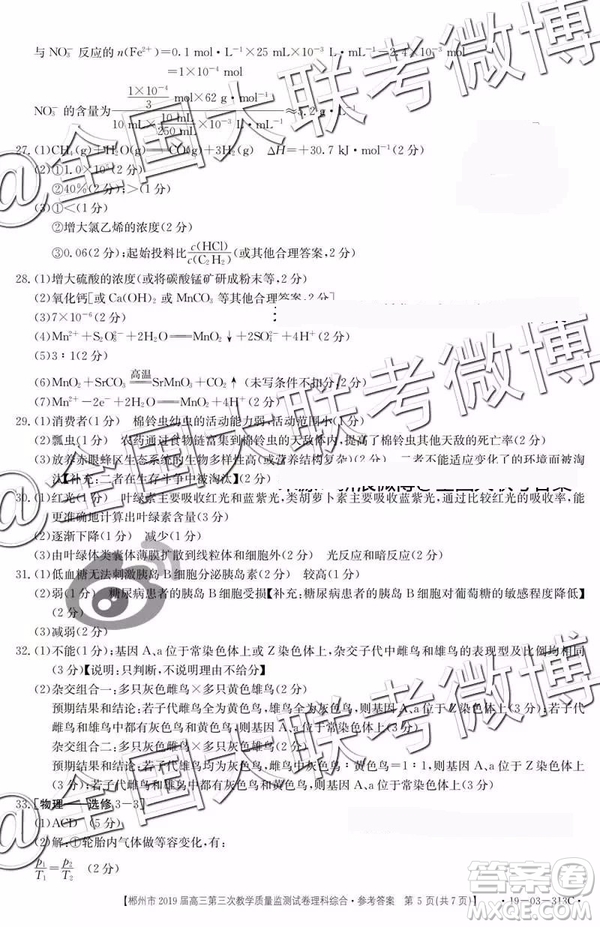 与 NO₃⁻ 反应的 n(Fe²⁺)=0.1 mol·L⁻¹×25 mL×10⁻³ L·mL⁻¹
=1×10⁻⁴ mol
NO₃⁻ 的含量为 1×10⁻⁴/3 mol×62 g·mol⁻¹ / 10 mL×10 mL/250 mL×10⁻³ L·mL⁻¹
27.(1)CH₄(g)+H₂O(g) CO(g)+3H₂(g) ΔH=+30.7 kJ·mol⁻¹(2 分)
(2)①1.0×10 (2 分)
②40%(2 分);>(2 分)
(3)①<(1 分)
②增大氯乙烯的浓度(2 分)
③0.06(2 分);起始投料比c(HCl)/c(C₂H₂)(或其他合理答案,2 分)
28.(1)增大硫酸的浓度(或将碳酸锰矿研成粉末等,2 分)
(2)氧化钙[或 Ca(OH)₂ 或 MnCO₃ 等其他合理答案,2 分]
(3)7×10⁻⁶(2 分)
(4)Mn²⁺+S₂O₈²⁻+2H₂O══MnO₂↓+2SO₄²⁻+4H⁺(2 分)
(5)3∶1(2 分)
(6)MnO₂+SrCO₃ 高温 SrMnO₃+CO₂↑(未写条件不扣分,2 分)
(7)Mn²⁺-2e⁻+2H₂O══MnO₂+4H⁺(2 分)
29.(1)消费者(1 分) 棉铃虫幼虫的活动能力弱,活动范围小(1 分)
(2)瓢虫(1 分) 农药通过食物链富集到棉铃虫的天敌中,提高了棉铃虫其他天敌的死亡率(2 分)
(3)放养赤眼蜂区生态系统的生物多样性高(或营养结构复杂)(2 分) 二者不能适应变化了的环境而被淘
汰【补充:二者在生存斗争中被淘汰】(2 分)
30.(1)红光(1 分) 叶绿素主要吸收红光和蓝紫光,类胡萝卜素主要吸收蓝紫光,通过比较红光的吸收率,能
更准确地计算出叶绿素含量(3 分)
(2)逐渐下降(1 分) 减小(1 分)
(3)由叶绿体类囊体薄膜扩散到线粒体和细胞外(2 分) 光反应和暗反应(1 分)
31.(1)低血糖无法刺激胰岛 B 细胞分泌胰岛素(2 分) 较高(1 分)
(2)弱(1 分) 糖尿病患者的胰岛 B 细胞受损【补充:糖尿病患者的胰岛 B 细胞对葡萄糖的敏感程度降低】
(2 分)
(3)减弱(2 分)
32.(1)不能(1 分);基因 A、a 位于常染色体上或 Z 染色体上,杂交子代中雌雄鸟的表现型及比例均相同
(3 分)【说明:只判断,不说明理由,不得分】
(2)杂交组合一:多只灰色雌鸟×多只黄色雄鸟(2 分)
预期结果和结论:若子代雌鸟全为黄色,雄鸟全为灰色,则基因 A、a 位于 Z 染色体上;若子代雌雄
鸟中都出现灰色和黄色,则基因 A、a 位于常染色体上(3 分)
杂交组合二:多只灰色雌鸟×多只灰色雄鸟(2 分)
预期结果和结论:若子代雄鸟均为灰色,雌鸟中灰色鸟∶黄色鸟=1∶1,则基因 A、a 位于 Z 染色体
上;若子代雌鸟和雄鸟中都有灰色和黄色,则基因 A、a 位于常染色体上(3 分)
33.[物理——选修 3-3]
(1)ACD (5 分)
(2)解:①轮胎内气体做等容变化,有:
p₁/T₁=p₂/T₂ (2 分)
【郴州市 2019 届高三第三次教学质量监测试卷理科综合·参考答案 第 5 页(共 7 页)】 ·19-03-313C·
@全国大联考微博
@全国大联考微博